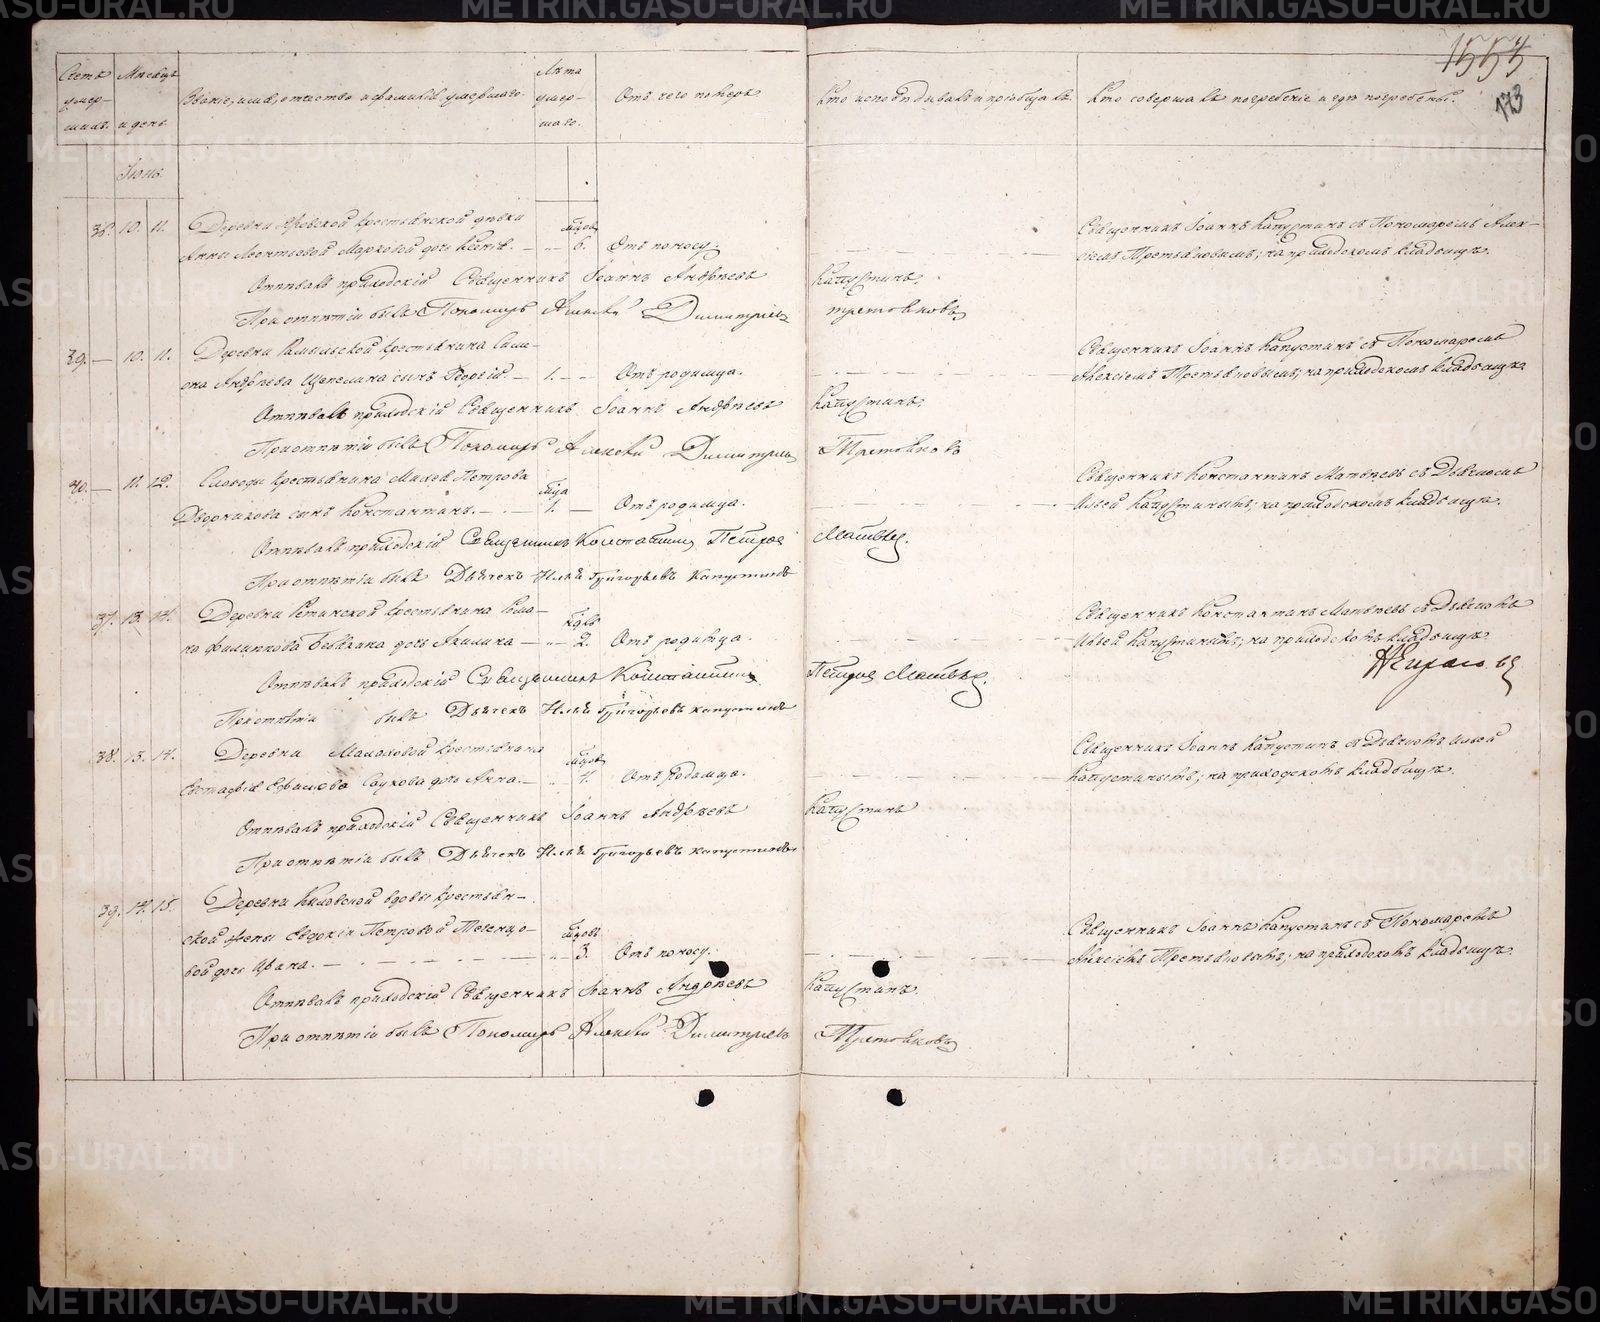 METRIKI.GASO-URAL.RU
1553
173
Счетъ умер-шихъ.
Мѣсяцъ и день.
Званіе, имя, отчество и фамилія умершаго.
Лѣта умер-шаго.
Отъ чего померъ
Кто исповѣдывалъ и пріобщалъ.
Кто совершалъ погребеніе и гдѣ погребены.
Іюнь.
36. 10. 11. Деревни крестьянской дѣвки
Анны Леонтьевой Марковой дочь Ксенія. 6. Отъ поносу.
Священникъ Іоаннъ Капустинъ съ Пономаремъ Алек-
сіемъ Третьяковымъ; на приходскомъ кладбищѣ.
Отпѣвалъ приходскій Священникъ Іоаннъ Андреевъ Капустинъ.
При отпѣтіи былъ Пономарь Алексѣй Димитріевъ Третьяковъ
39. 10. 11. Деревни крестьянина Симе-
она Андреева сынъ Георгій. 1. Отъ родимца.
Священникъ Іоаннъ Капустинъ съ Пономаремъ
Алексіемъ Третьяковымъ; на приходскомъ кладбищѣ.
Отпѣвалъ приходскій Священникъ Іоаннъ Андреевъ Капустинъ.
При отпѣтіи былъ Пономарь Алексѣй Димитріевъ Третьяковъ
40. 11. 12. Слободы крестьянина Петрова
Дворникова сынъ Константинъ. 1. Отъ родимца.
Священникъ Константинъ Матвѣевъ съ Дьячкомъ
Ильей Капустинымъ; на приходскомъ кладбищѣ.
Отпѣвалъ приходскій Священникъ Константинъ Петровъ Матвѣевъ.
При отпѣтіи былъ Дьячекъ Илья Григорьевъ Капустинъ
37. 13. 14. Деревни крестьянина Рома-
на Филиппова дочь Акилина 2. Отъ родимца.
Священникъ Константинъ Матвѣевъ съ Дьячкомъ
Ильей Капустинымъ; на приходскомъ кладбищѣ.
Отпѣвалъ приходскій Священникъ Константинъ Петровъ Матвѣевъ.
При отпѣтіи былъ Дьячекъ Илья Григорьевъ Капустинъ
38. 13. 14. Деревни Малаховой крестьянина
Евстафія Ефимова дочь Анна. 4. Отъ родимца.
Священникъ Іоаннъ Капустинъ съ Дьячкомъ Ильей
Капустинымъ; на приходскомъ кладбищѣ.
Отпѣвалъ приходскій Священникъ Іоаннъ Андреевъ Капустинъ
При отпѣтіи былъ Дьячекъ Илья Григорьевъ Капустинъ
39. 14. 15. Деревни вдовы крестьян-
ской жены Евдокіи Петровой
вой дочь Ирина. 3. Отъ поносу.
Священникъ Іоаннъ Капустинъ съ Пономаремъ
Алексіемъ Третьяковымъ; на приходскомъ кладбищѣ.
Отпѣвалъ приходскій Священникъ Іоаннъ Андреевъ Капустинъ.
При отпѣтіи былъ Пономарь Алексѣй Димитріевъ Третьяковъ